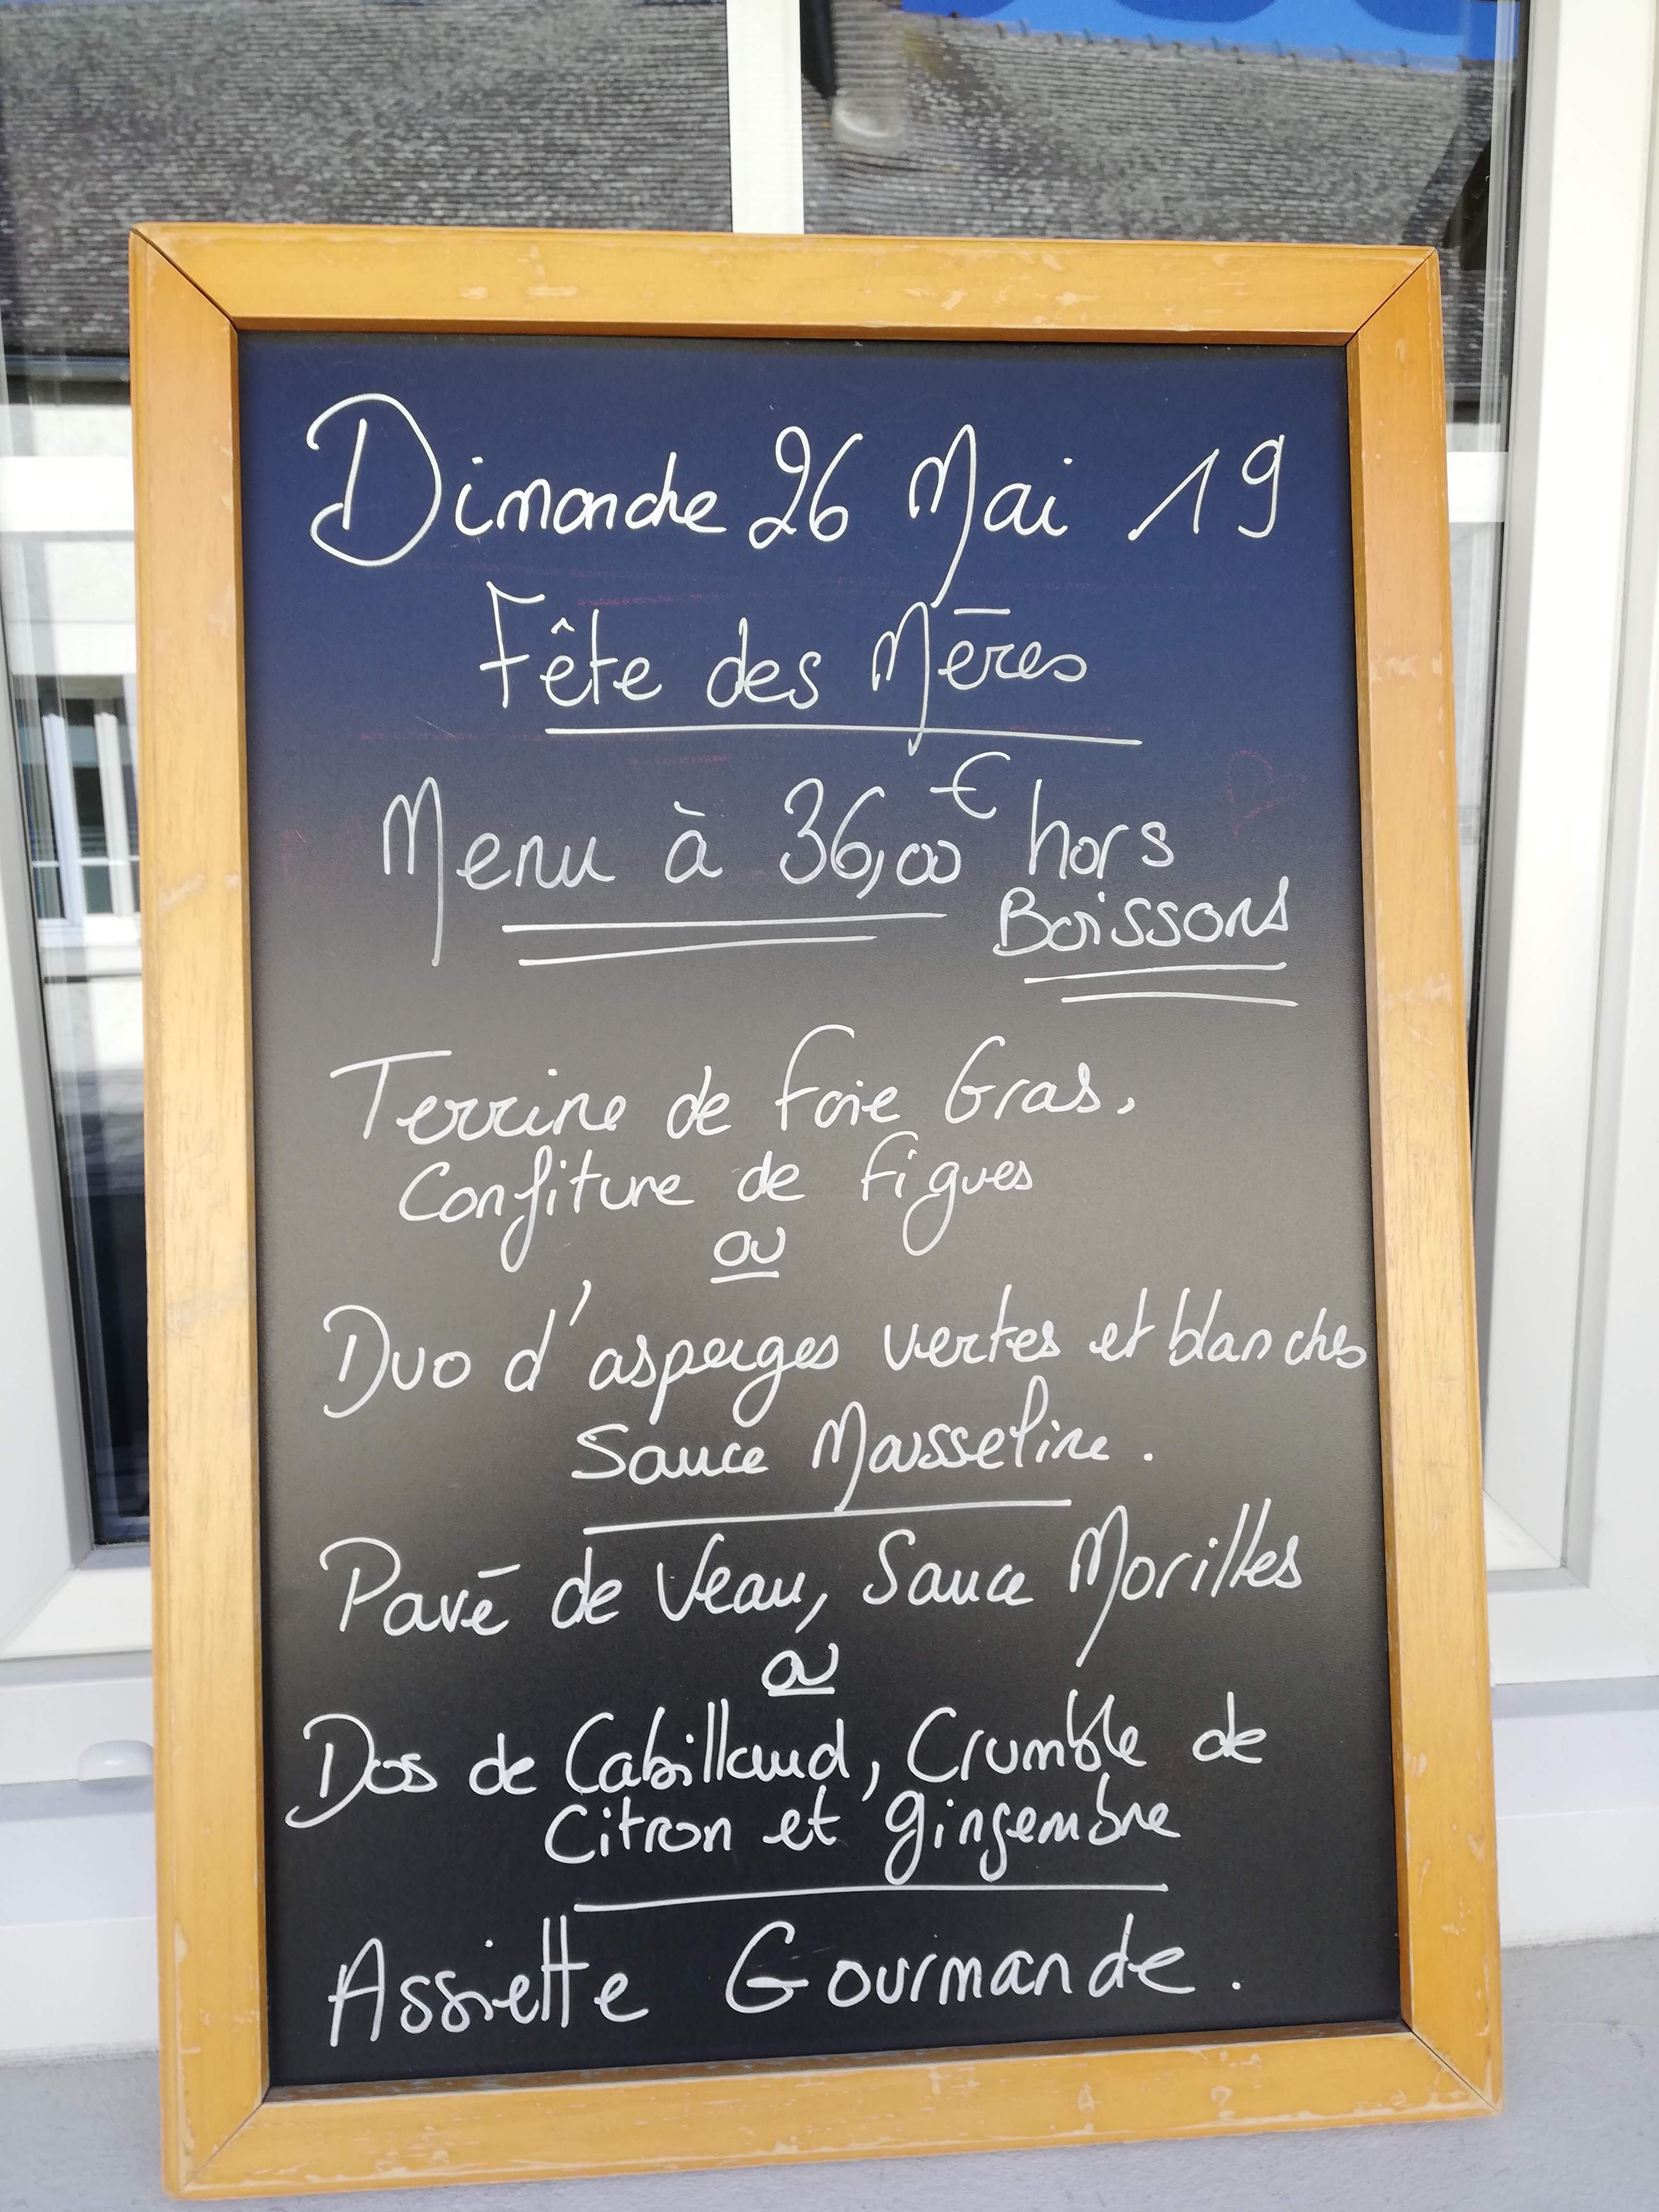 Dimanche 26 Mai 19
Fête des Mères
Menu à 36,00€ hors
Boissons
Terrine de foie Gras,
Confiture de figues
ou
Duo d'asperges vertes et blanches
Sauce Mousseline.
Pavé de Veau, Sauce Morilles
ou
Dos de Cabillaud, Crumble de
Citron et gingembre
Assiette Gourmande.